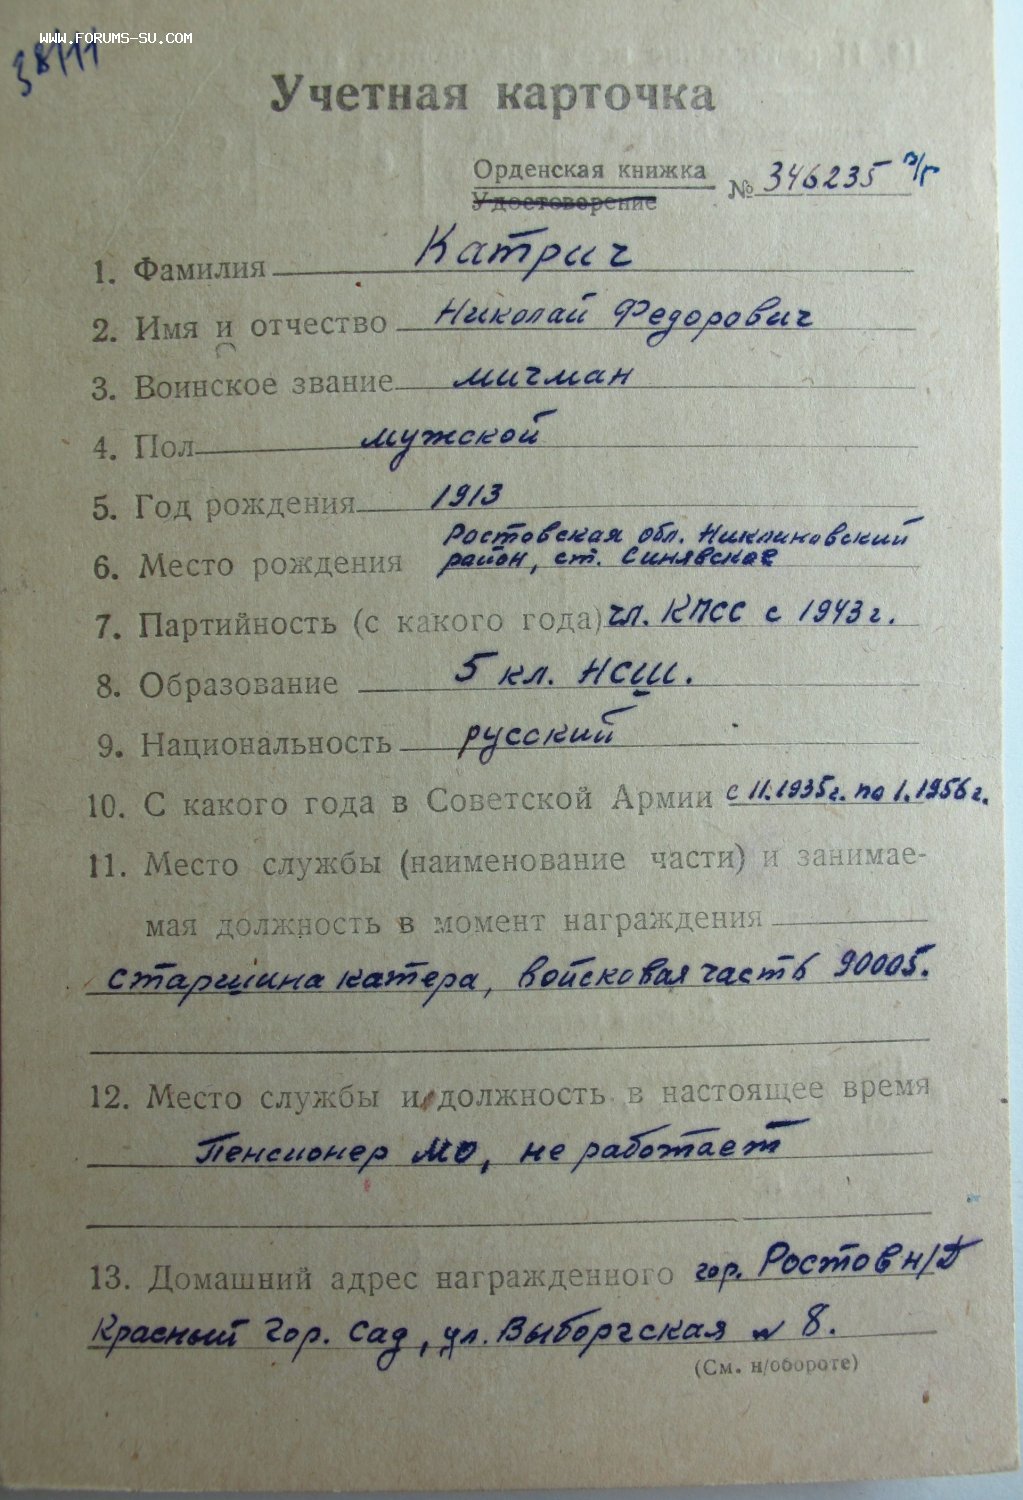 www.forums-su.com
Учетная карточка
Орденская книжка
Удостоверение
№ 346235 э/г
1. Фамилия Катрич
2. Имя и отчество Николай Федорович
3. Воинское звание мичман
4. Пол мужской
5. Год рождения 1913
Ростовская обл. Никлиновский
6. Место рождения район, ст. Синявское
7. Партийность (с какого года) чл. КПСС с 1943 г.
8. Образование 5 кл. НСШ.
9. Национальность русский
10. С какого года в Советской Армии с 11.1935г. по 1.1956г.
11. Место службы (наименование части) и занимае-
мая должность в момент награждения
старшина катера, войсковая часть 90005.
12. Место службы и должность в настоящее время
Пенсионер МО, не работает
13. Домашний адрес награжденного гор. Ростов н/Д
Красный Гор. Сад, ул. Выборгская № 8.
(См. н/обороте)